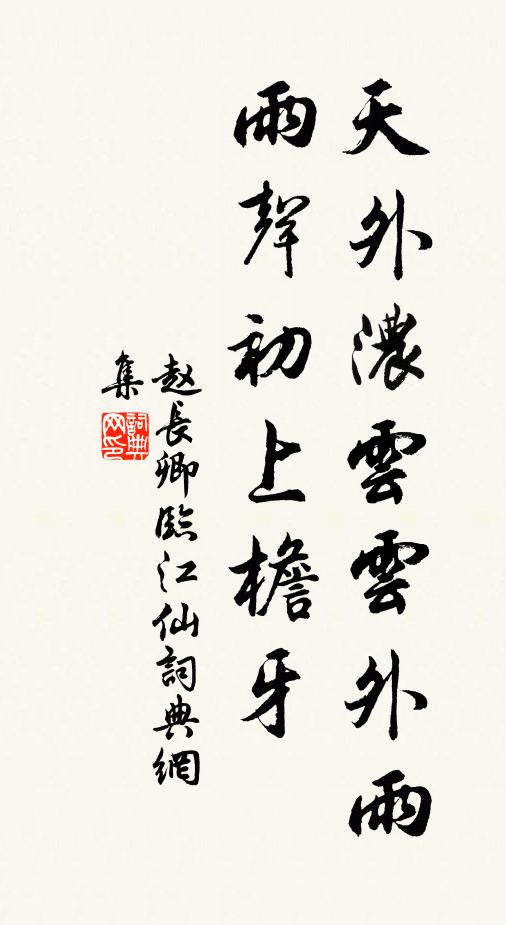 天外濃雲雲外雨
雨聲初上檐牙
赵長卿臨江仙詞典網
集
詞典
网印